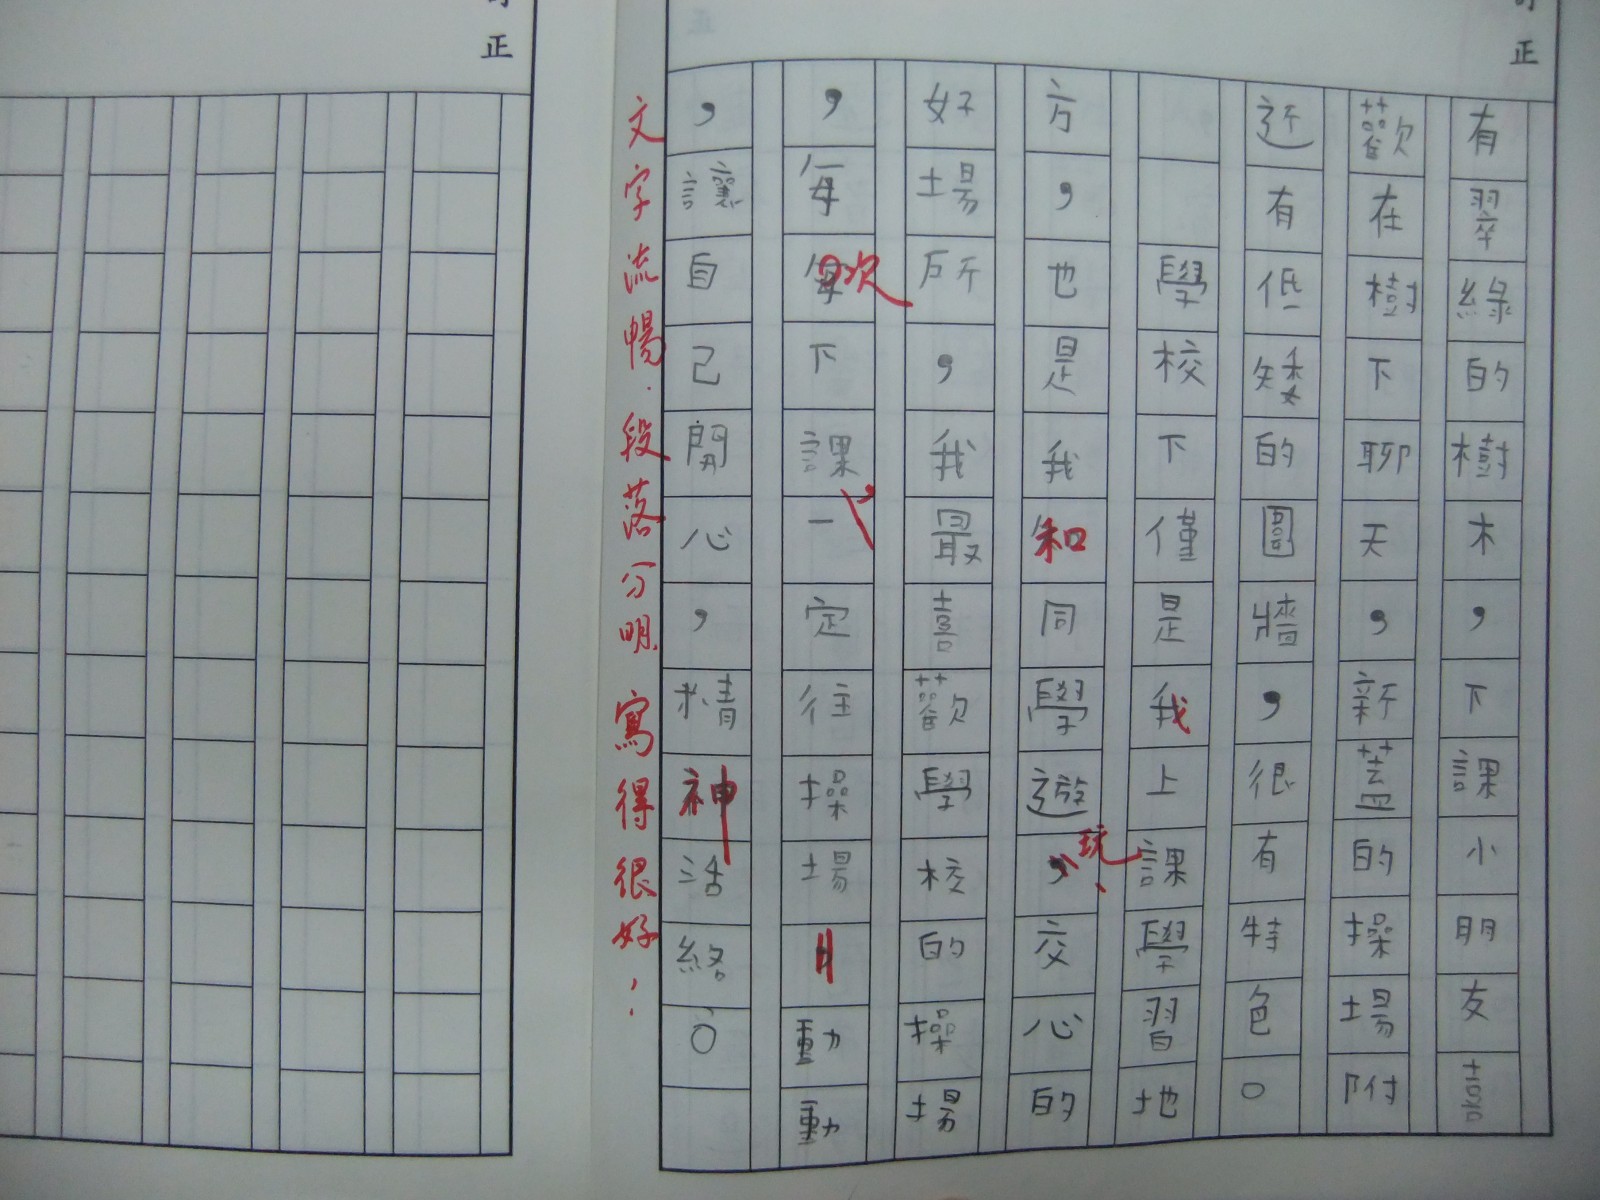 訂正
有翠綠的樹木，下課小朋友喜
歡在樹下聊天，新蓋的操場附
近有低矮的圍牆，很有特色。
學校下僅是我上課學習地
方，也是我和同學遊玩、交心的
好場所，我最喜歡學校的操場
，每次下課，一定往操場動動
，讓自己開心，精神活絡。
文字流暢．段落分明．寫得很好！
正